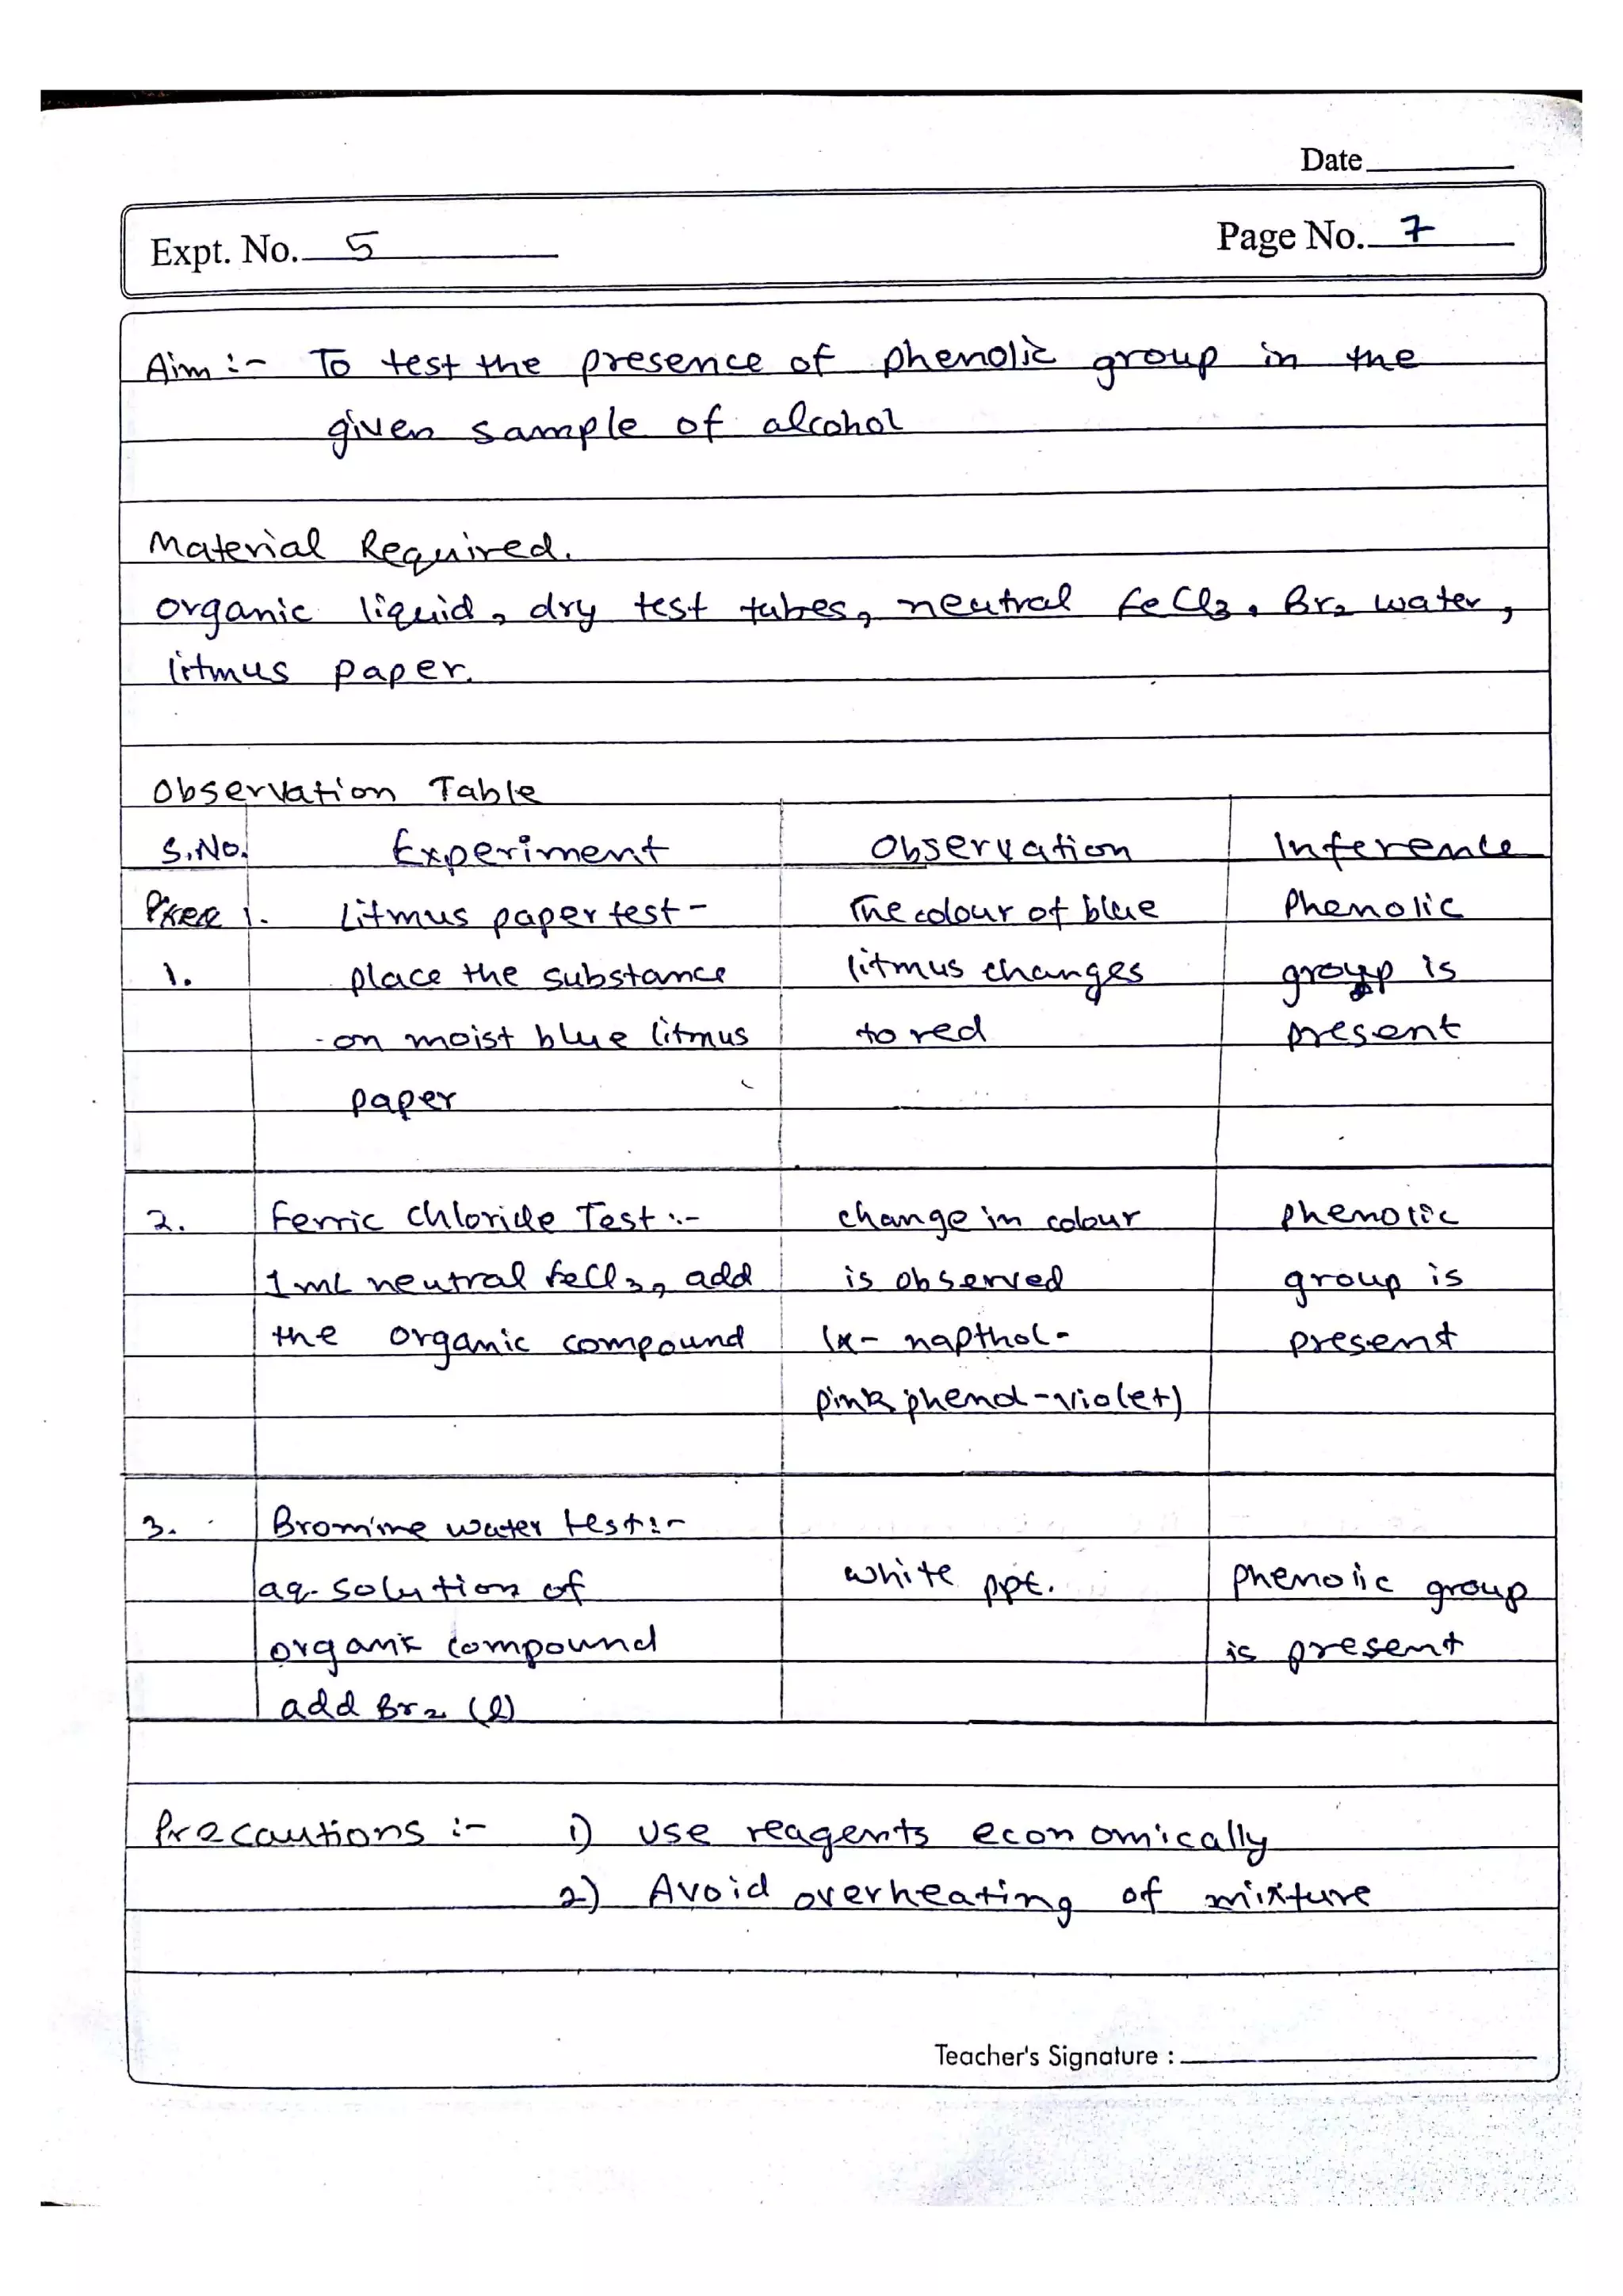 Date
Expt. No. 5
Page No. 7
Aim :- To test the presence of phenolic group in the
given sample of alcohol
Material Required.
organic liquid, dry test tubes, neutral FeCl3, Br2 water,
litmus paper.
Observation Table
S.No. Experiment Observation Inference
1. Litmus paper test - The colour of blue Phenolic
1. place the substance litmus changes group is
- on moist blue litmus to red present
paper
2. Ferric chloride Test :- change in colour phenolic
1 mL neutral FeCl3, add is observed group is
the organic compound (α- napthol- present
pink phenol - violet)
3. Bromine water test :-
aq. solution of white ppt. phenolic group
organic compound is present
add Br2 (l)
Precautions :- 1) Use reagents economically
2) Avoid overheating of mixture
Teacher's Signature :